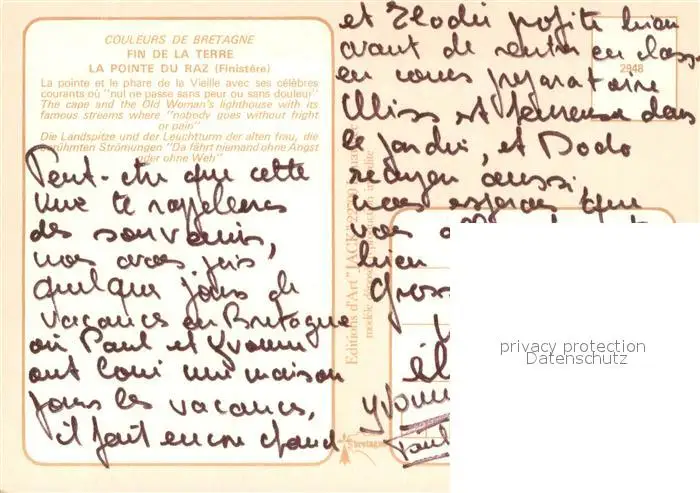 COULEURS DE BRETAGNE
FIN DE LA TERRE
LA POINTE DU RAZ (Finistére)
La pointe et le phare de la Vieille avec ses célèbres
courants où "nul ne passe sans peur ou sans douleur"
The cape and the Old Woman's lighthouse with its
famous streams where "nobody goes without fright
or pain"
Die Landspitze und der Leuchtturm der alten frau, die
berühmten Strömungen "Da fährt niemand ohne Angst
oder ohne Weh"
Peut-etre que cette
vue te rappelleras
des souvenirs,
nous avons pris,
quelque jours de
vacances en Bretagne
où Paul et Yvonne
ont loué une maison
pour les vacances,
il fait encore chaud
et Elodie profite bien
avant de rentrer en classe
en cours preparatoire
est dans
le jardin, et Dodo
aussi,
nous esperons que
vous
bien
Yvonne
Paul
2948
Editions d'Art "JACK" 22
Bretagne
privacy protection
Datenschutz